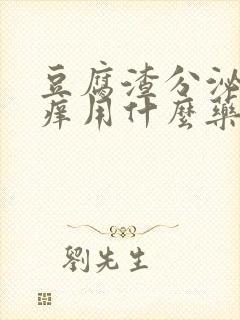 豆腐渣分泌
痒用什麼藥
劉先生